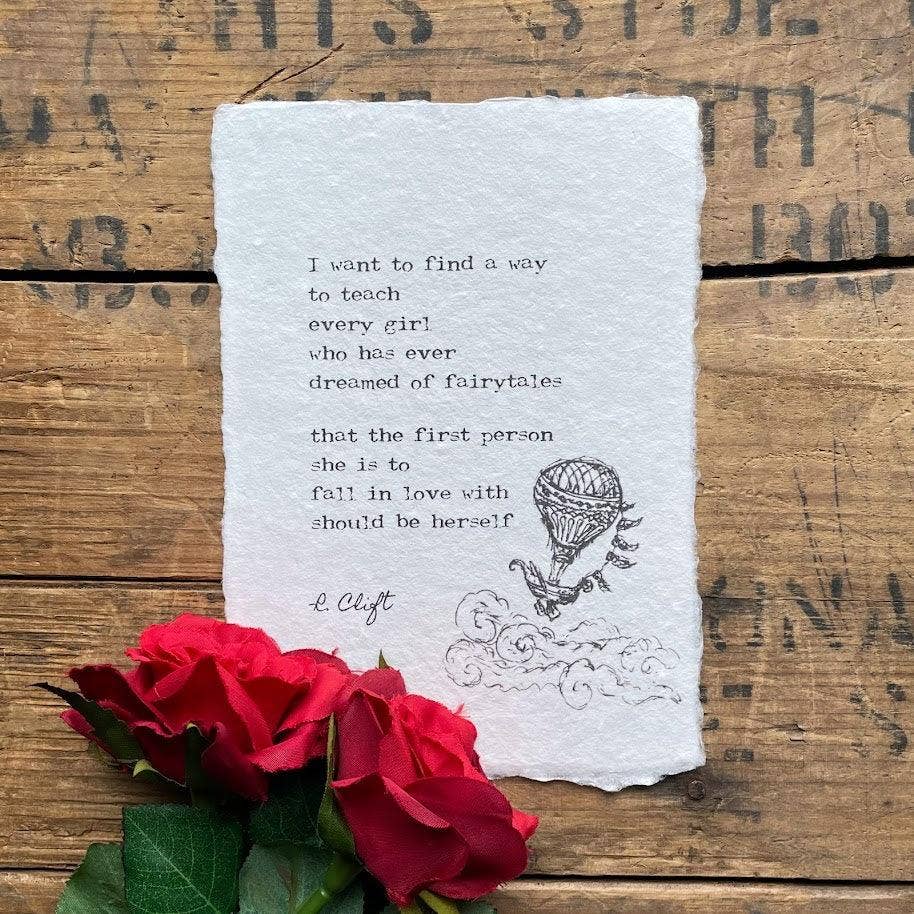 I want to find a way
to teach
every girl
who has ever
dreamed of fairytales
that the first person
she is to
fall in love with
should be herself
R. Clift